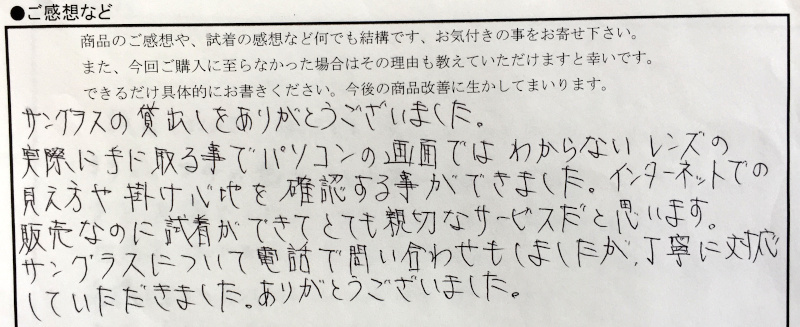 ●ご感想など
商品のご感想や、試着の感想など何でも結構です、お気付きの事をお寄せ下さい。
また、今回ご購入に至らなかった場合はその理由も教えていただけますと幸いです。
できるだけ具体的にお書きください。今後の商品改善に生かしてまいります。
サングラスの貸出しをありがとうございました。
実際に手に取る事でパソコンの画面ではわからないレンズの
見え方や掛け心地を確認する事ができました。インターネットでの
販売なのに試着ができてとても親切なサービスだと思います。
サングラスについて電話で問い合わせもしましたが、丁寧に対応
していただきました。ありがとうございました。